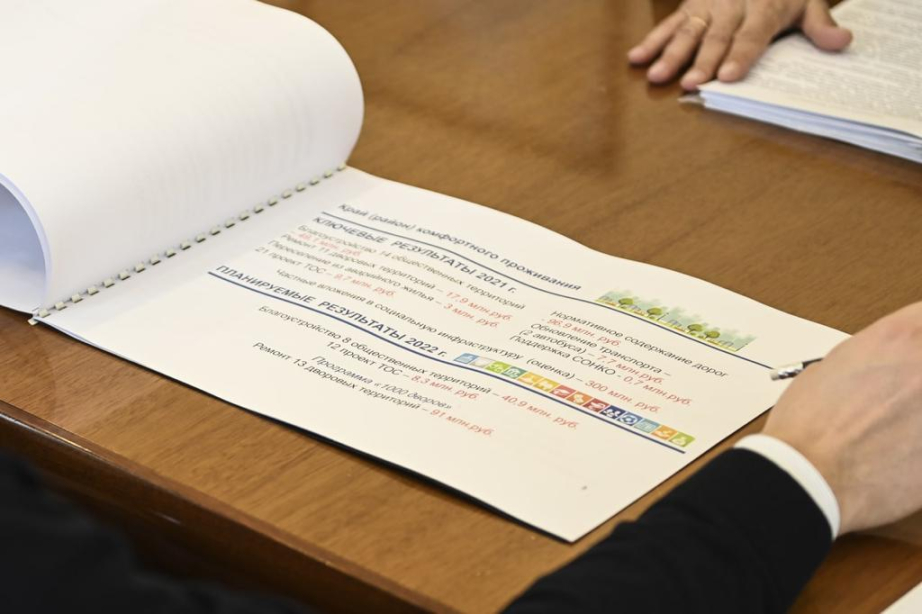 Край (район) комфортного проживания
КЛЮЧЕВЫЕ РЕЗУЛЬТАТЫ 2021 г.
Благоустройство 14 общественных территорий
– 48,1 млн. руб.
Ремонт 11 дворовых территорий – 17,9 млн.руб.
Переселение из аварийного жилья – 3 млн. руб.
21 проект ТОС – 9,7 млн. руб.
Частные вложения в социальную инфраструктуру (оценка) – 300 млн. руб.
Нормативное содержание дорог
- 96,9 млн. руб.
Обновление транспорта –
(2 автобуса) – 7,7 млн.руб.
Поддержка СОНКО - 0,7 млн.руб.
ПЛАНИРУЕМЫЕ РЕЗУЛЬТАТЫ 2022 г.
Благоустройство 8 общественных территорий – 40,9 млн. руб.
12 проект ТОС – 8,3 млн. руб.
Программа «1000 дворов»
Ремонт 13 дворовых территорий – 91 млн.руб.